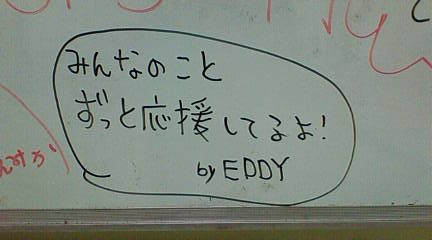 みんなのこと
ずっと応援してるよ!
by EDDY